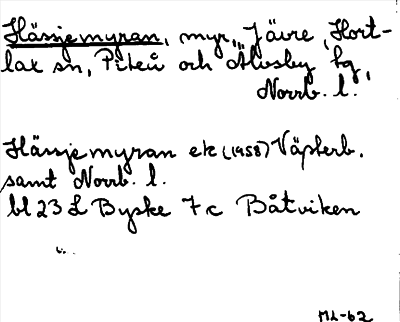 Hässjemyran, myr, Jävre, Hort-
lax sn, Piteå och Älvsby tg,
Norrb. l.
Hässjemyran ek (1958) Västerb.
samt Norrb. l.
bl 23 L Byske 7c Båtviken
ML-62